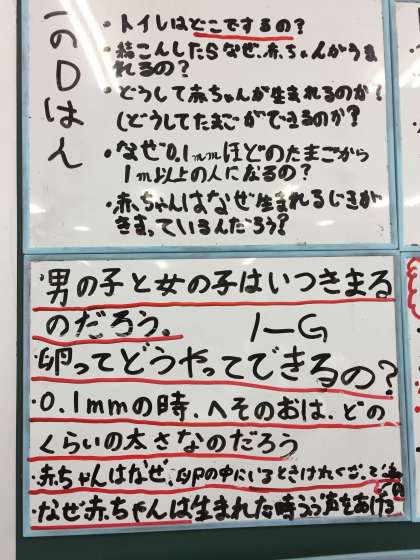 一のDはん
・トイレはどこでするの？
・結こんしたらなぜ、赤ちゃんがうま
れるの？
・どうして赤ちゃんが生まれるのか！
(どうしてたまごができるのか？
・なぜ0.1mmほどのたまごから
1m以上の人になるの？
・赤ちゃんはなぜ生まれるじきが
きまっているんだろう？
・男の子と女の子はいつきまる
のだろう。 1ーG
・卵ってどうやってできるの？
・0.1mmの時、へそのおは、どの
くらいの太さなのだろう
・赤ちゃんはなぜ、卵の中にいるとき
・なぜ赤ちゃんは生まれた時うぶ声をあげる